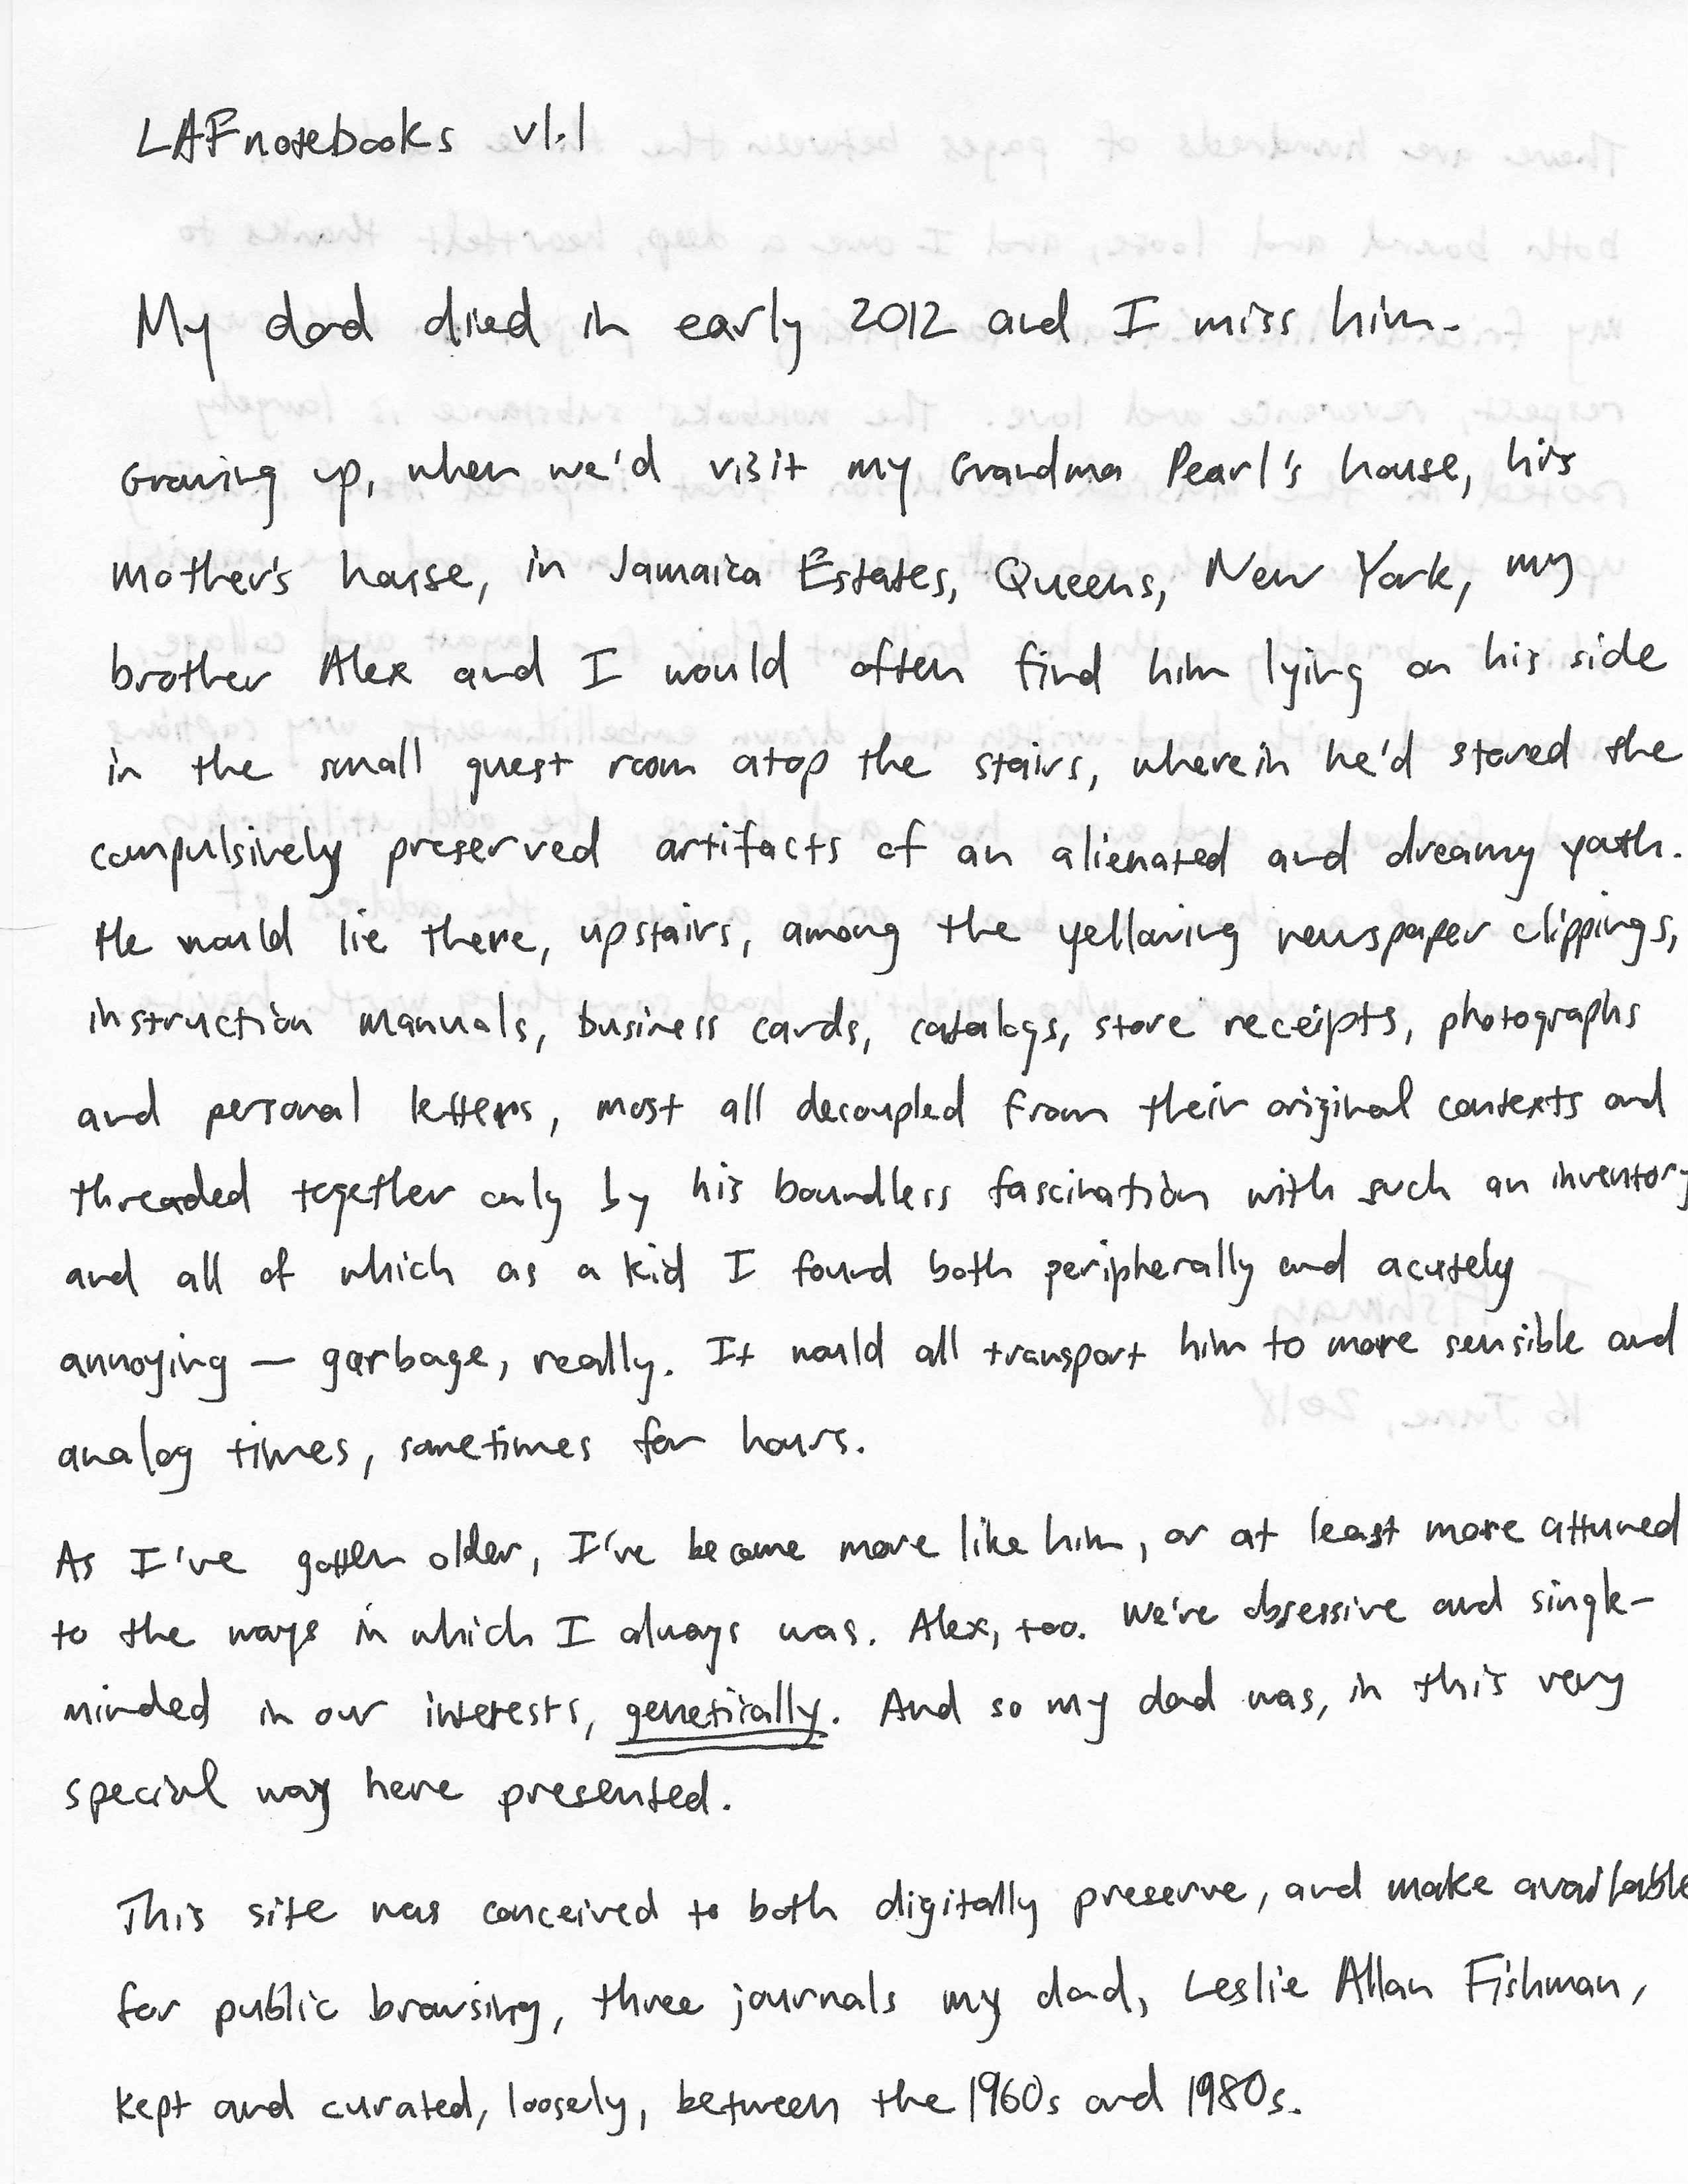 LAFnotebooks v1.1
My dad died in early 2012 and I miss him.
Growing up, when we'd visit my Grandma Pearl's house, his
mother's house, in Jamaica Estates, Queens, New York, my
brother Alex and I would often find him lying on his side
in the small guest room atop the stairs, wherein he'd stored the
compulsively preserved artifacts of an alienated and dreamy youth.
He would lie there, upstairs, among the yellowing newspaper clippings,
instruction manuals, business cards, catalogs, store receipts, photographs
and personal letters, most all decoupled from their original contexts and
threaded together only by his boundless fascination with such an inventory
and all of which as a kid I found both peripherally and acutely
annoying — garbage, really. It would all transport him to more sensible and
analog times, sometimes for hours.
As I've gotten older, I've become more like him, or at least more attuned
to the ways in which I always was. Alex, too. We're obsessive and single-
minded in our interests, genetically. And so my dad was, in this very
special way here presented.
This site was conceived to both digitally preserve, and make available
for public browsing, three journals my dad, Leslie Allan Fishman,
kept and curated, loosely, between the 1960s and 1980s.